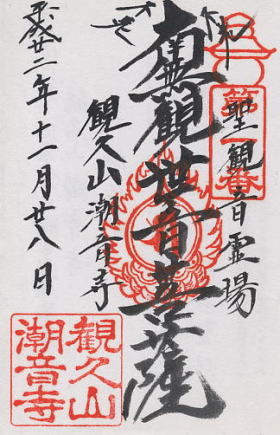 聖観音霊場
第一番
南無観世音菩薩
観久山潮音寺
平成廿二年十一月廿八日
観久山
潮音寺